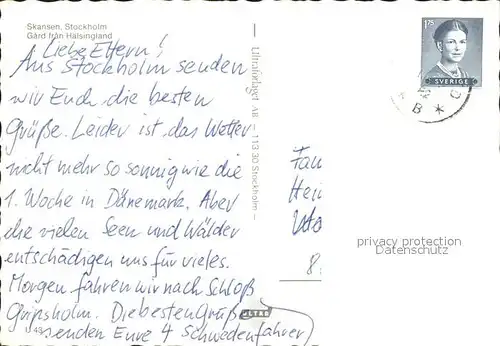 Skansen, Stockholm
Gård från Hälsingland
Liebe Eltern!
Aus Stockholm senden
wir Euch die besten
Grüße. Leider ist das Wetter
nicht mehr so sonnig wie die
1. Woche in Dänemark. Aber
die vielen Seen und Wälder
entschädigen uns für vieles.
Morgen fahren wir nach Schloß
Gripsholm. Die besten Grüße
senden Eure 4 Schwedenfahrer
Ultraförlaget AB – 113 30 Stockholm –
ULTRA
175
SVERIGE
B
Fam
Hei
8
privacy protection
Datenschutz